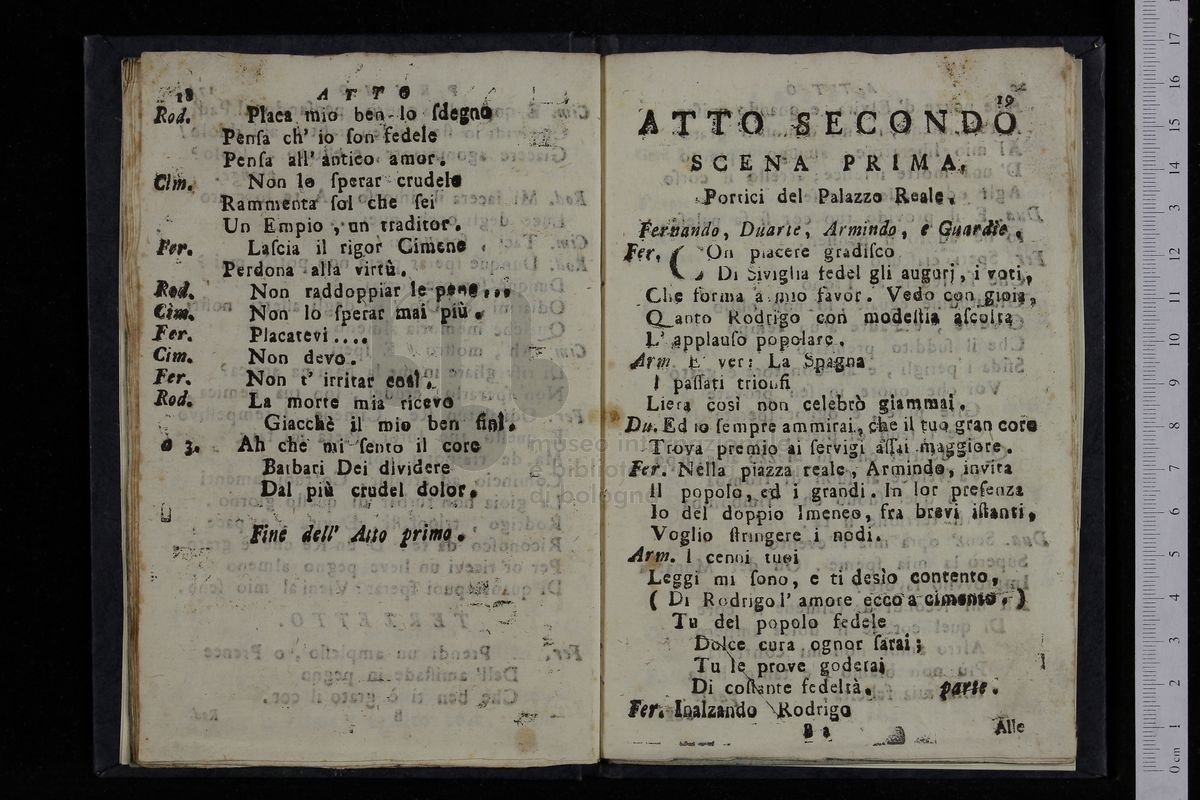 18 ATTO
Rod. Placa mio ben lo ſdegno
Penſa ch' io ſon fedele
Penſa all' antico amor.
Cim. Non lo ſperar crudele
Rammenta ſol che ſei
Un Empio, un traditor.
Fer. Laſcia il rigor Cimene
Perdona alla virtù.
Rod. Non raddoppiar le pene...
Cim. Non lo ſperar mai più.
Fer. Placatevi....
Cim. Non devo.
Fer. Non t' irritar così.
Rod. La morte mia ricevo
Giacchè il mio ben finì.
a 3. Ah che mi ſento il core
Barbari Dei dividere
Dal più crudel dolor.
Fine dell' Atto primo.
19
ATTO SECONDO
SCENA PRIMA.
Portici del Palazzo Reale.
Fernando, Duarte, Armindo, e Guardie.
Fer. Con piacere gradiſco
Di Siviglia fedel gli augurj, i voti,
Che forma a mio favor. Vedo con gioia,
Quanto Rodrigo con modeſtia aſcolta
L' applauſo popolare.
Arm. E' ver: La Spagna
I paſſati trionfi
Lieta così non celebrò giammai.
Du. Ed io ſempre ammirai, che il tuo gran core
Trova premio ai ſervigi aſſai maggiore.
Fer. Nella piazza reale, Armindo, invita
Il popolo, ed i grandi. In lor preſenza
Io del doppio Imeneo, fra brevi iſtanti,
Voglio ſtringere i nodi.
Arm. I cenni tuoi
Leggi mi ſono, e ti deſio contento,
( Di Rodrigo l' amore ecco a cimento. )
Tu del popolo fedele
Dolce cura ognor ſarai;
Tu le prove goderai
Di coſtante fedeltà. parte.
Fer. Inalzando Rodrigo
B 2 Alle
museo internazionale
e biblioteca
di bologna
0 cm 1 2 3 4 5 6 7 8 9 10 11 12 13 14 15 16 17